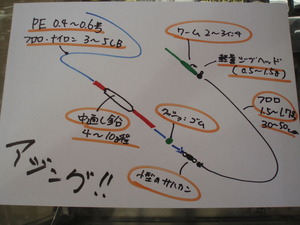 PE 0.4〜0.6号
フロロ・ナイロン 3〜5LB
ワーム 2〜3インチ
軽量ジグヘッド
(0.5〜1.5g)
フロロ
1.5〜1.75
30〜50cm
中通し鉛
4〜10g程
クッションゴム
小型のサルカン
アジング!!